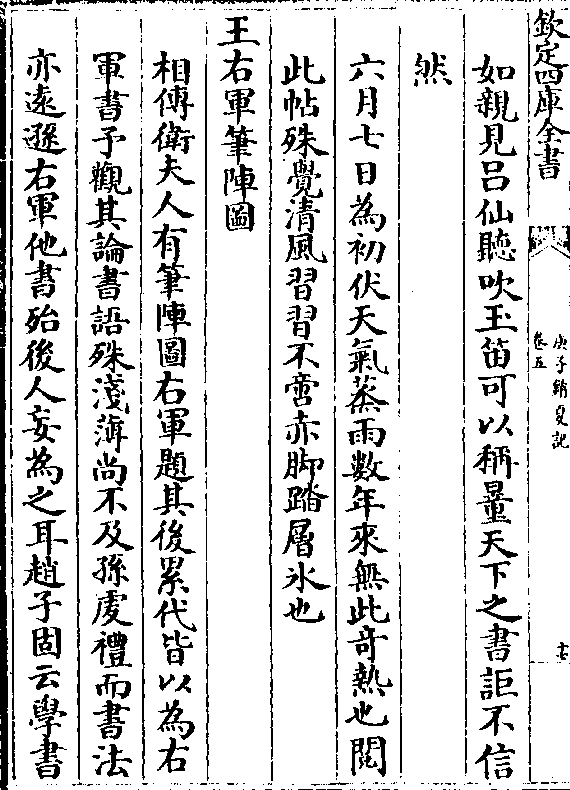 欽定四庫全書
庚子銷夏記
卷五
如親見呂仙聽吹玉笛可以稱量天下之書詎不信
然
六月七日為初伏天氣蒸雨數年來無此奇熱也閱
此帖殊覺清風習習不啻赤脚踏層冰也
王右軍筆陣圖
相傳衛夫人有筆陣圖右軍題其後累代皆以為右
軍書予觀其論書語殊淺薄尚不及孫虔禮而書法
亦遠遜右軍他書殆後人妄為之耳趙子固云學書